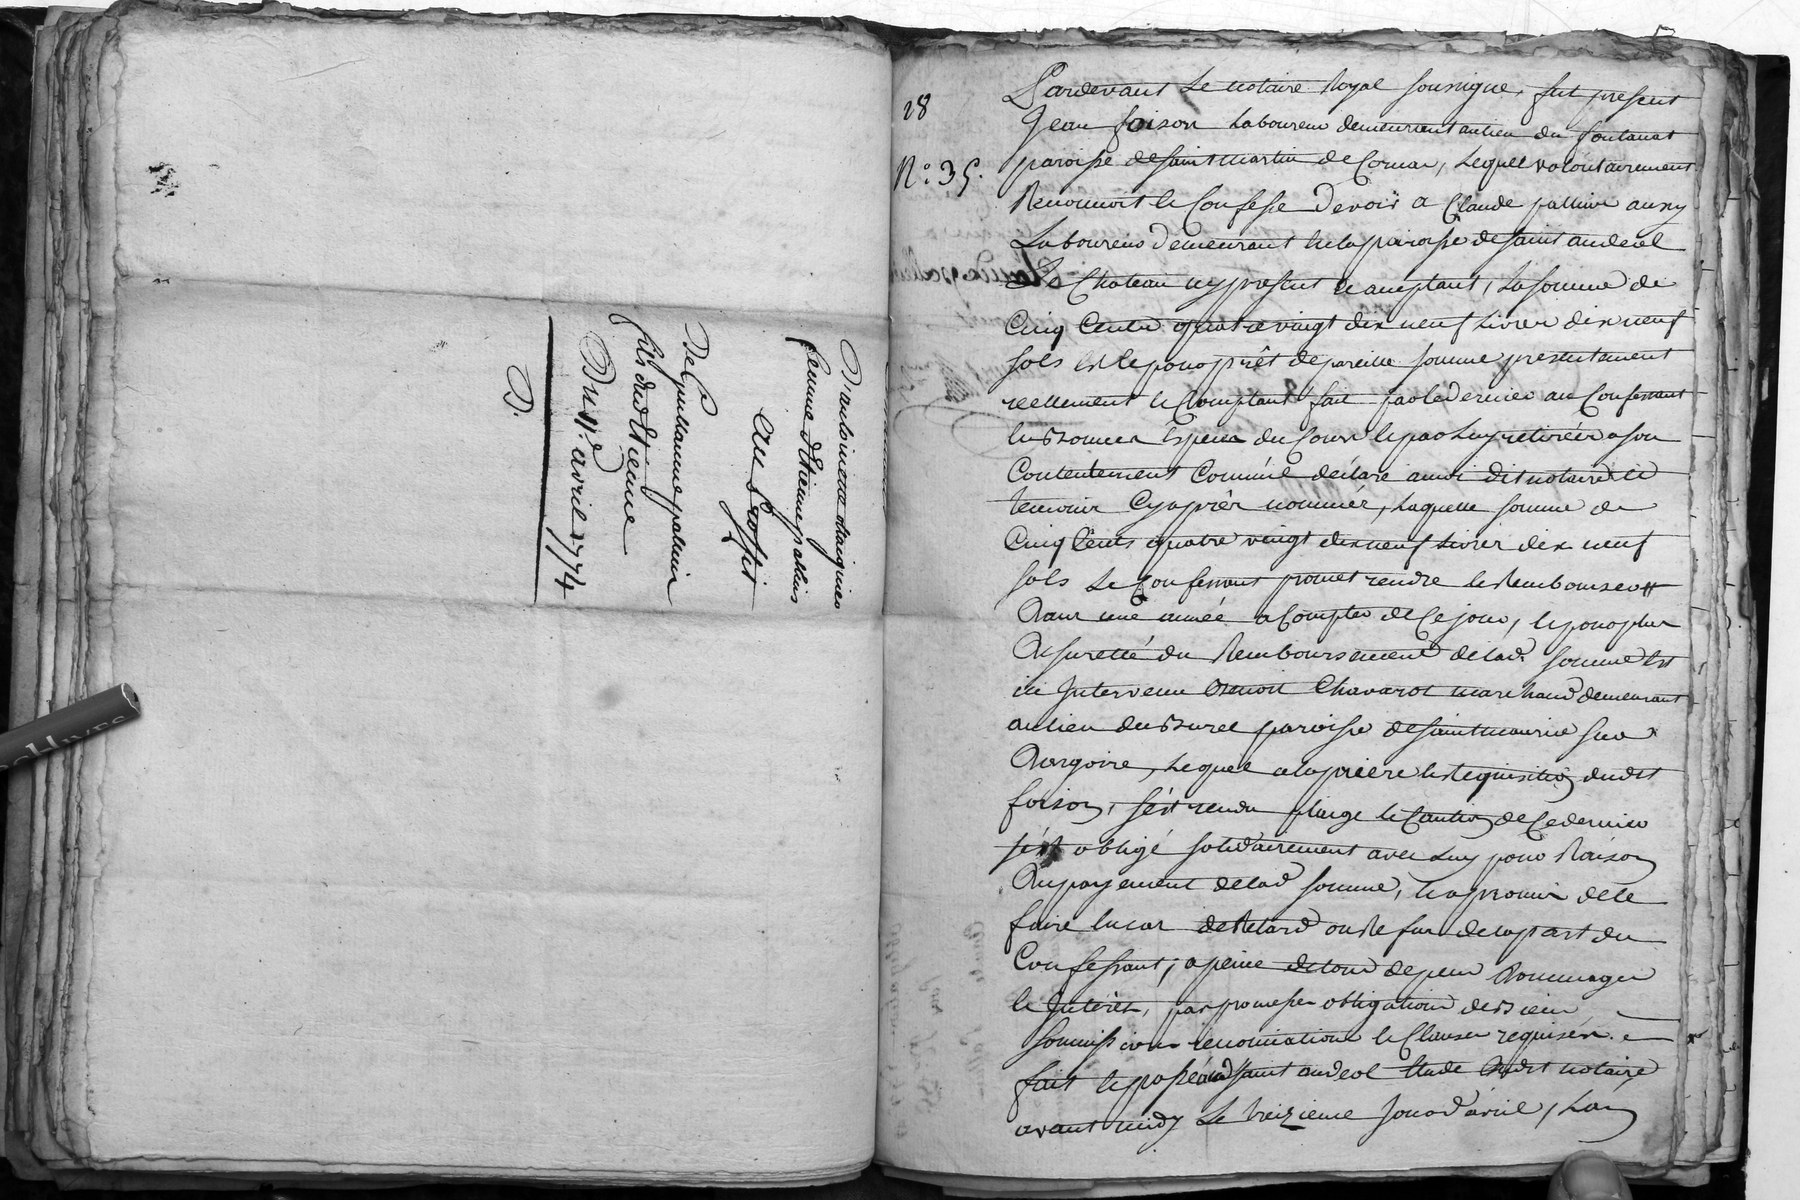 D'antoinette
femme d'Etienne pallius
au Proffit
De Guillaume paluir
fils dud. Etienne
Du 11e avril 1774
D.
28
N.º 35.
Pardevant Le notaire Royal soussigné, fut present
Jean foison Laboureur demeurant au lieu du fontanat
paroisse de saint martin de Cornas, Lequel volontairement
Reconnoit et Confesse Devoir a Claude palluir aussy
Laboureur Demeurant en la paroisse de saint andeol
Le Chateau icy present et aceptant, La somme de
Cinq Cents quatre vingt dix neuf Livres dix neuf
sols Et ce pour prêt de pareille somme presentement
reellement et Comptant fait par ce dernier au Confessant
en Bonnes Especes du Cours et par Luy retirées a son
Contentement Comme il declare a moi dit notaire et
temoins Cy après nommés, Laquelle somme de
Cinq Cents quatre vingt dix neuf Livres dix neuf
sols Le Confessant promet rendre et Rembourser
Dans une année a Compter de Ce jour, et pour plus
De sureté du Remboursement de lad. somme Est
ici Intervenu Benoit Chavarot marchand demeurant
au lieu du Burel paroisse de saint maurice sur
Dargoire, Lequel a la priere et Requisition dudit
foison, s'est rendu pleige et Caution de Ce dernier
s'est obligé solidairement avec Luy pour Raison
Du payement de lad. somme, et a promis de le
faire en cas de Retard ou Refus de la part du
Confessant, a peine de tous depens Dommages
et Interets, par promesses obligation de Biens
soumissions renonciations et Clauses requises.
fait et passé aud. saint andeol Etude Dudit notaire
avant midy Le treizieme Jour d'avril, L'an